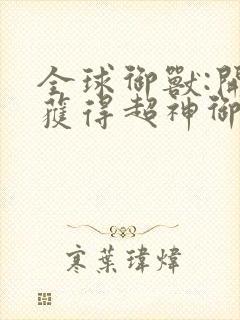 全球御獸:開
獲得超神御
寒葉瑋煒